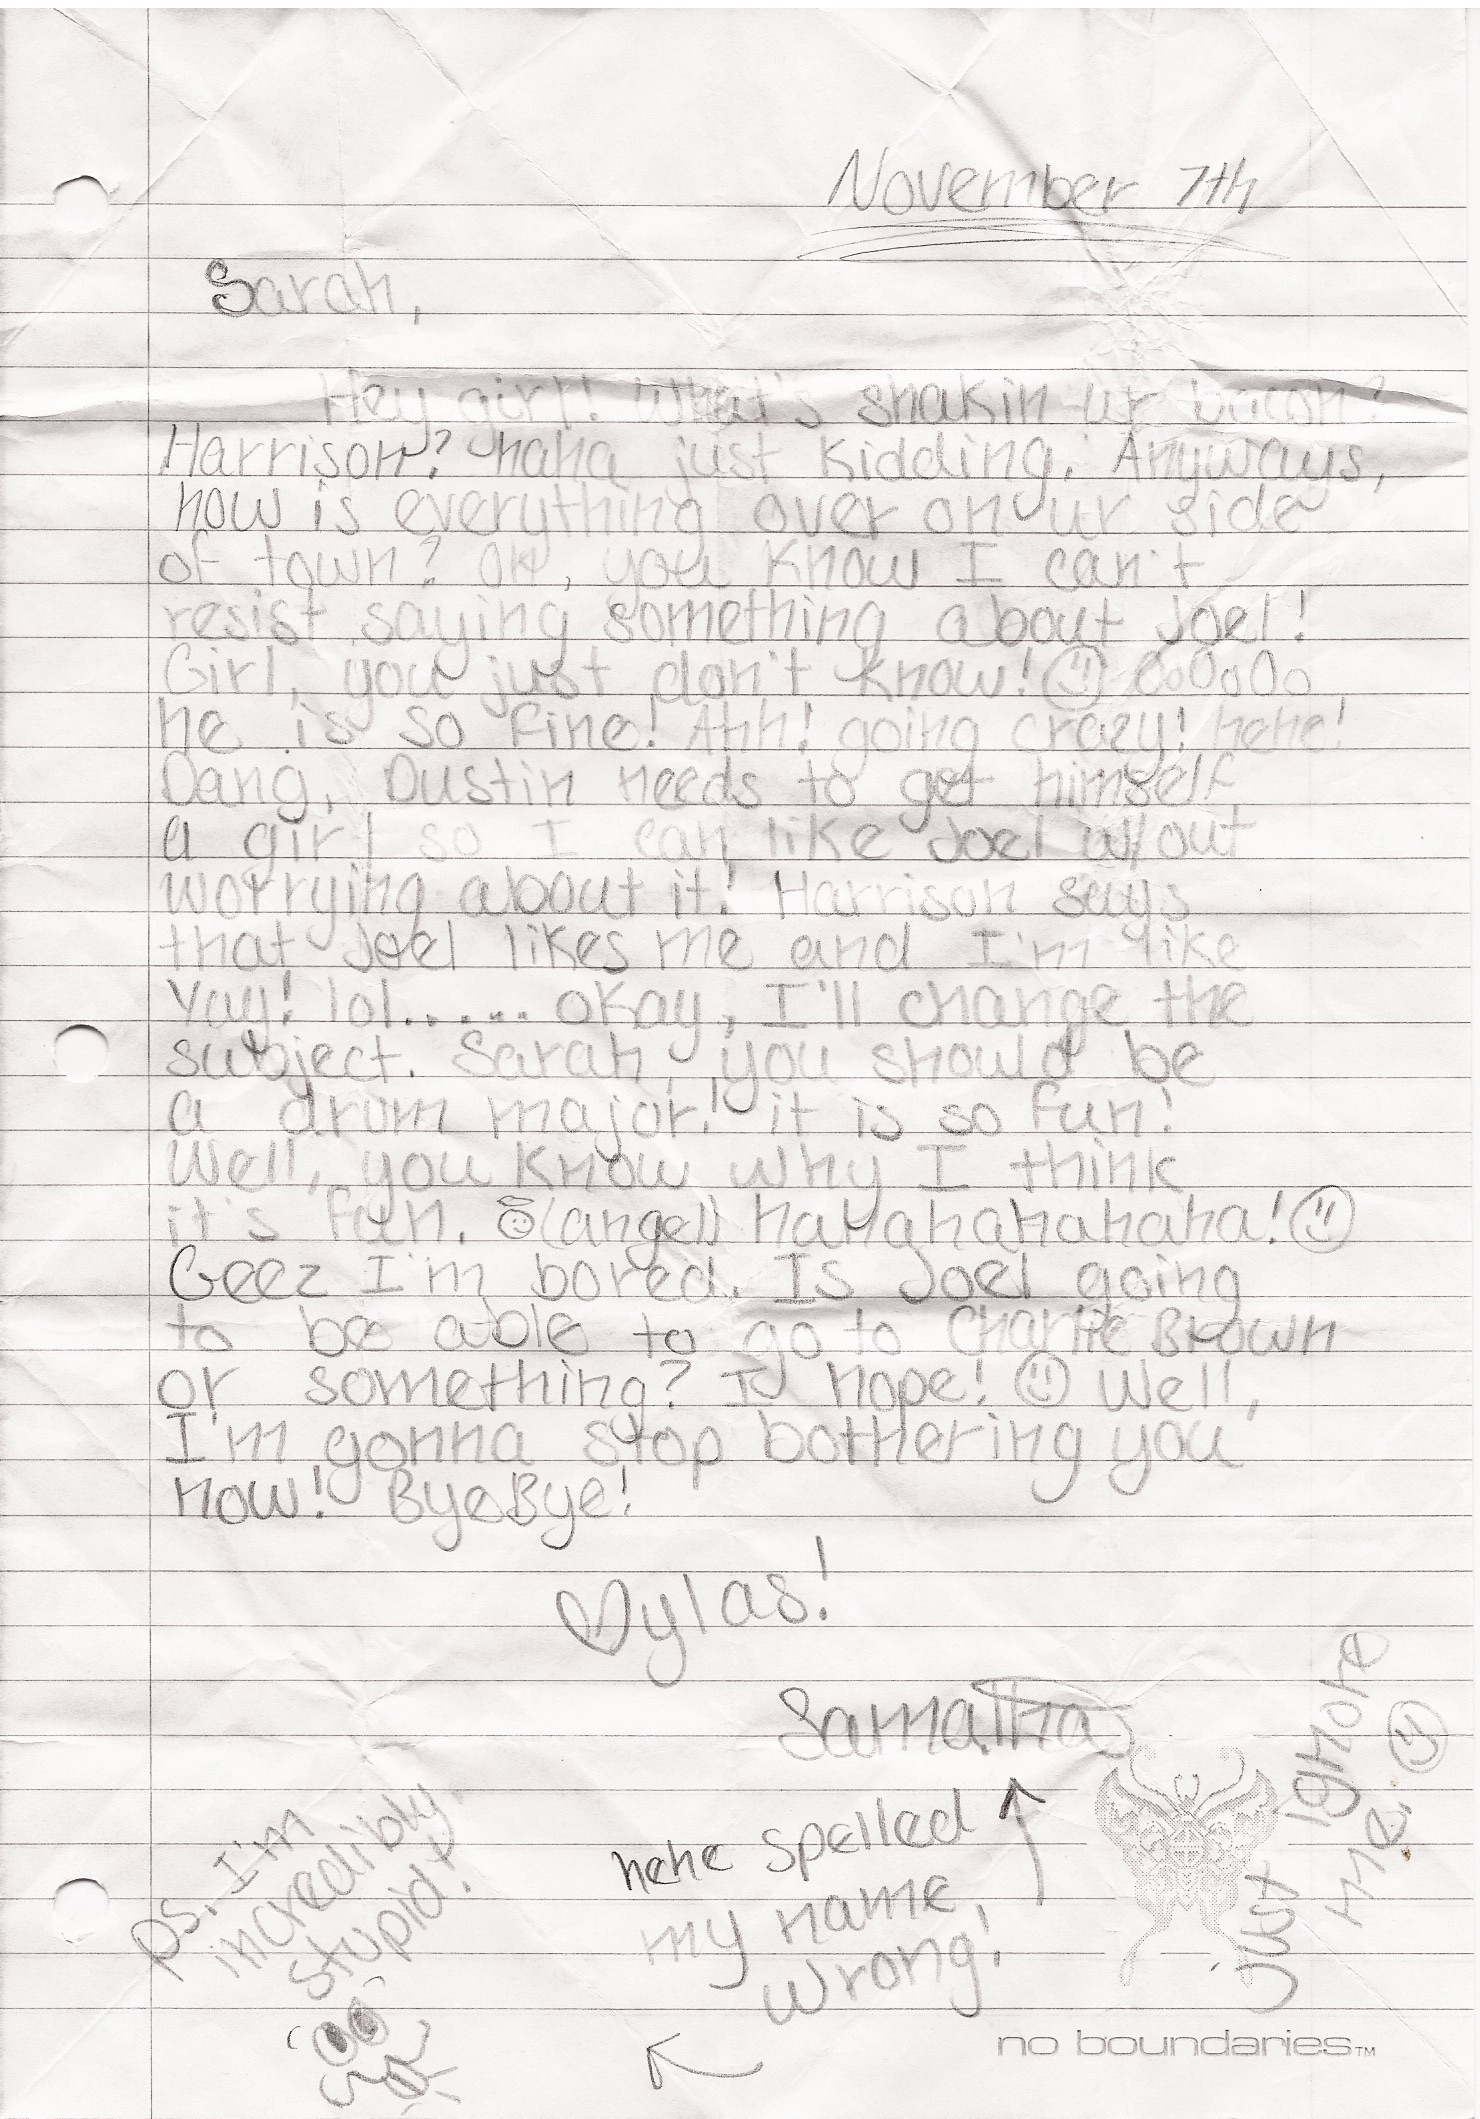 November 7th
Sarah,
Hey girl! What's shakin ur bacon?
Harrison? haha just kidding. Anyways,
how is everything over on ur side
of town? Oh, you know I can't
resist saying something about Joel!
Girl, you just don't know! OoOoOo
he is so fine! Ahh! going crazy! hehe!
Dang, Dustin needs to get himself
a girl so I can like Joel w/out
worrying about it! Harrison says
that Joel likes me and I'm like
Yay! lol...... okay, I'll change the
subject. Sarah, you should be
a drum major! it is so fun!
Well, you know why I think
it's fun. (angel) hahahahahaha!
Geez I'm bored. Is Joel going
to be able to go to Charlie Brown
or something? I hope! Well,
I'm gonna stop bothering you
now! ByeBye!
ylas!
Samatha
hehe spelled
my name
wrong!
ps. I'm
incredibly
stupid!
Just ignore
me.
no boundaries™